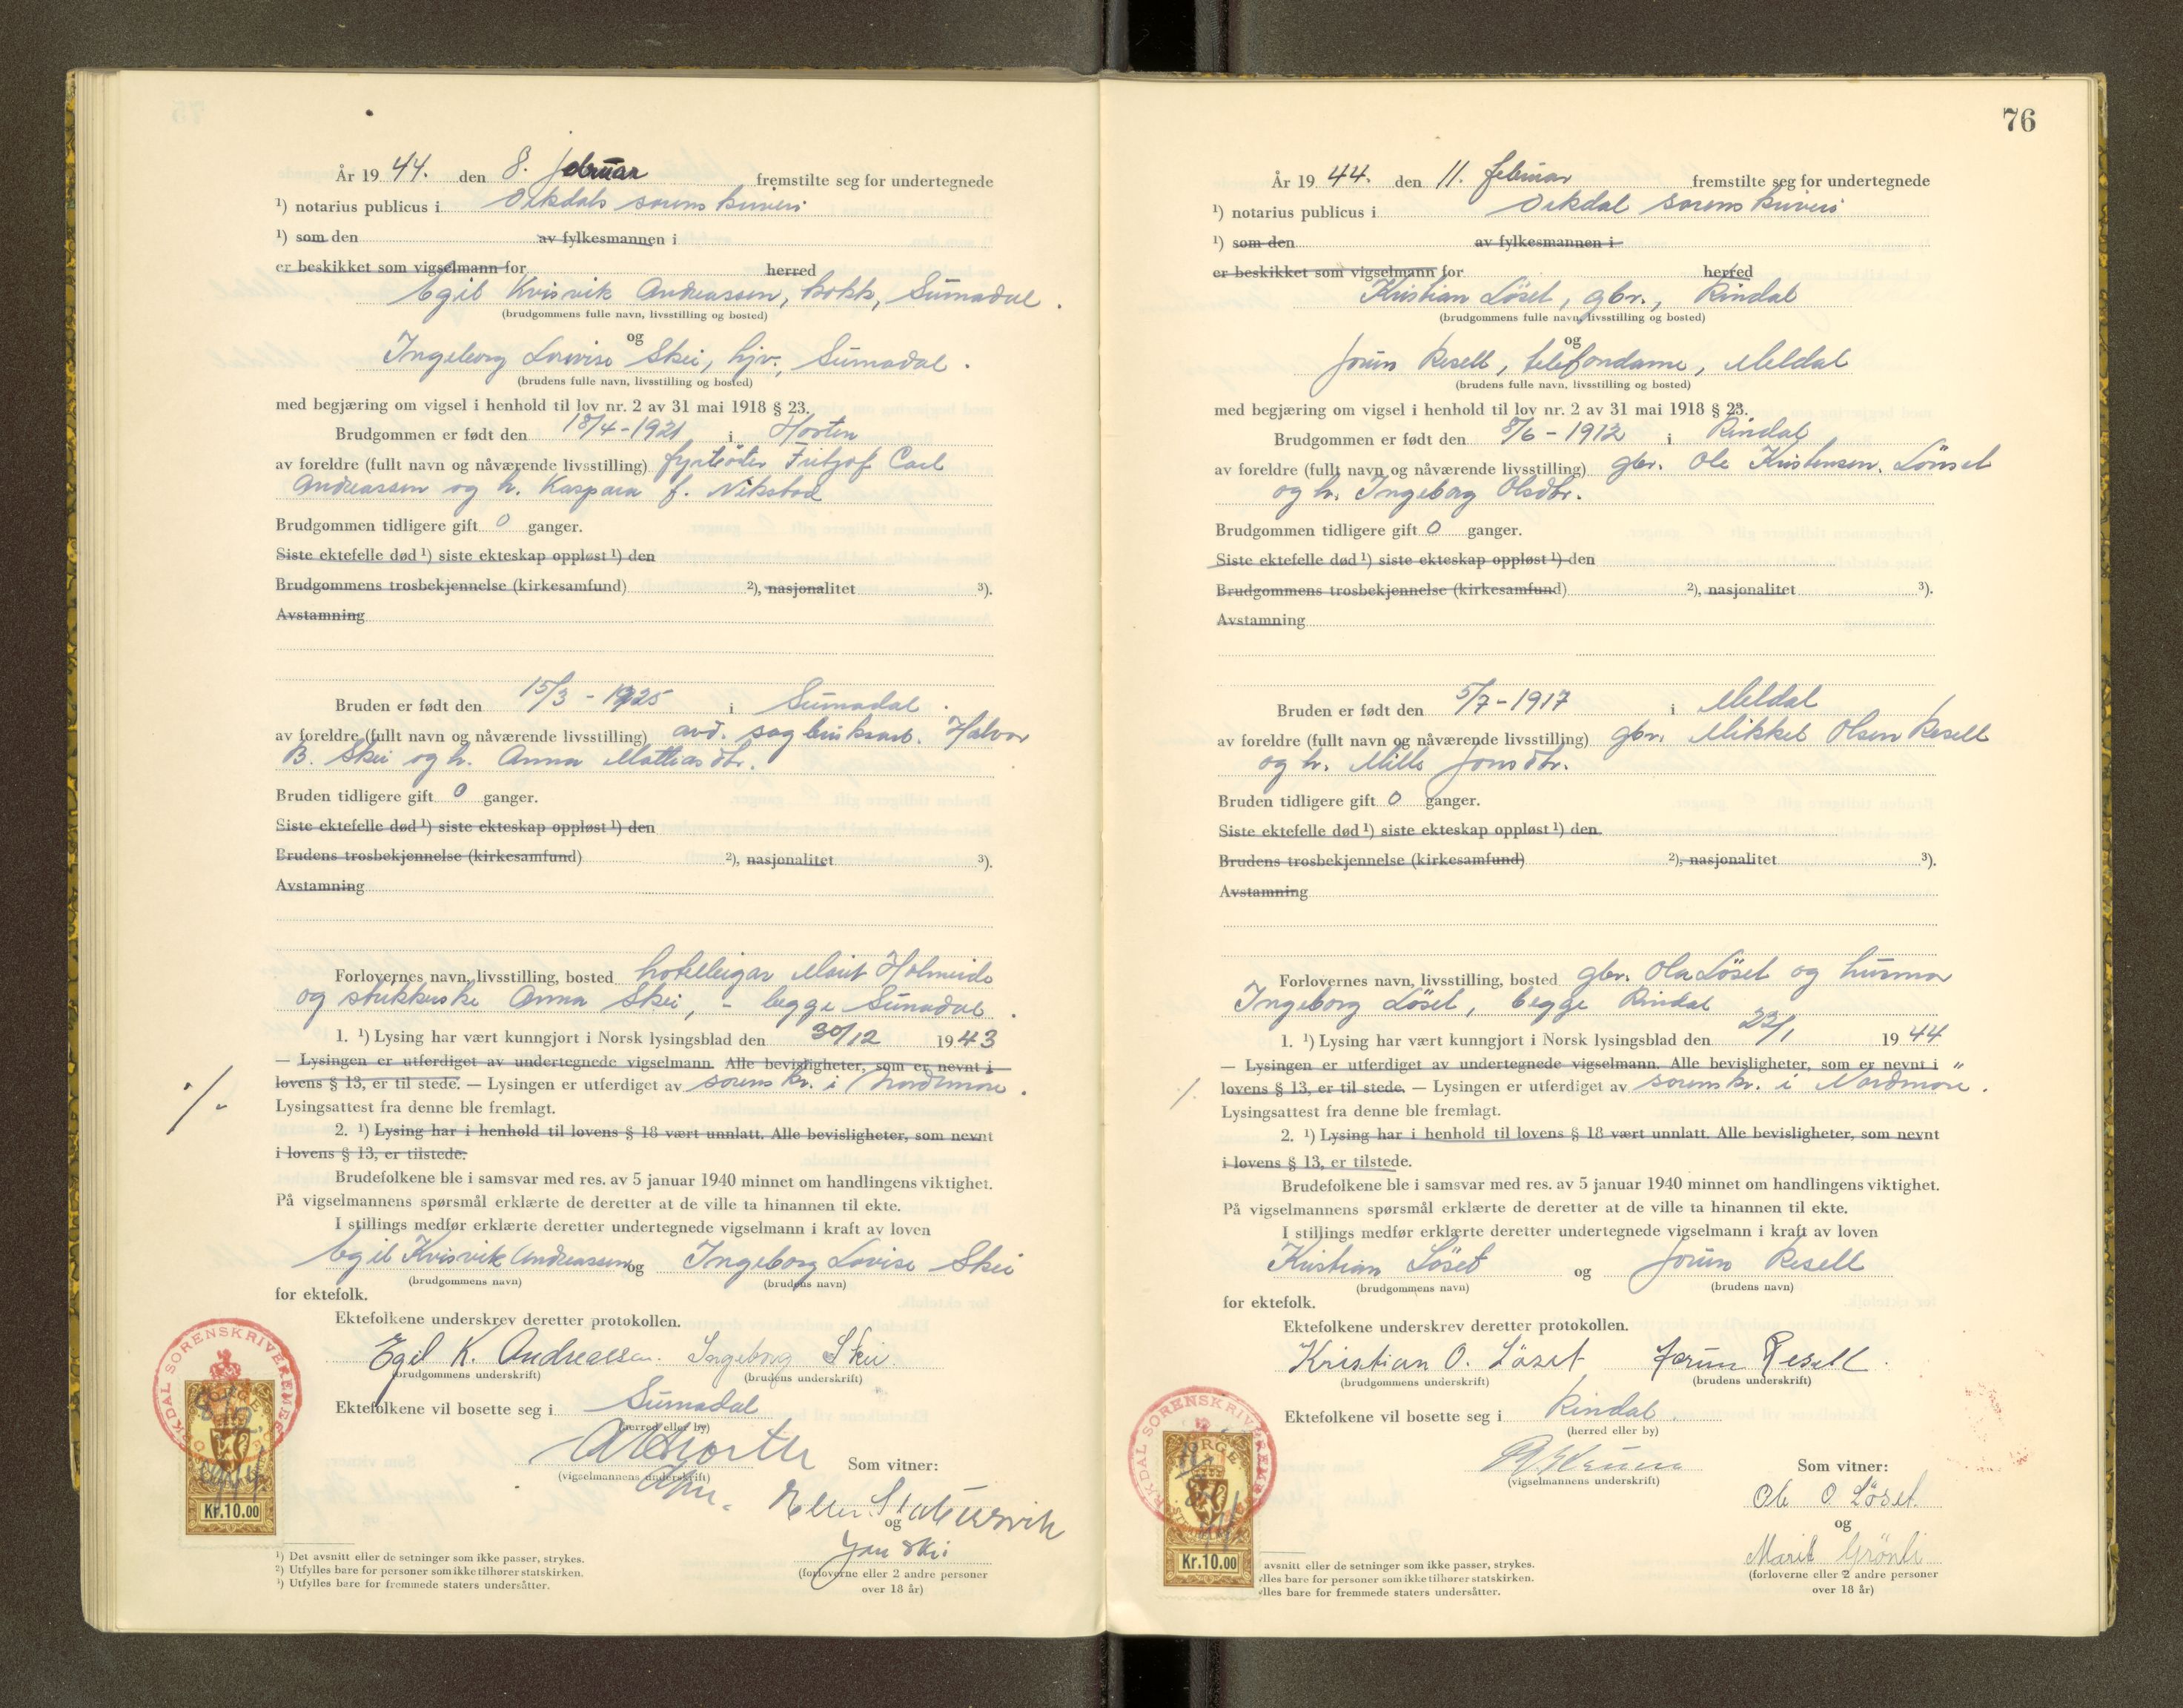 År 19 44. den 8. februar fremstilte seg for undertegnede
¹) notarius publicus i Orkdals sorenskriveri
¹) som den av fylkesmannen i
er beskikket som vigselmann for herred
Egil Kvisvik Andreassen, kokk, Surnadal.
(brudgommens fulle navn, livsstilling og bosted)
og
Ingeborg Lovise Skei, hjv., Surnadal.
(brudens fulle navn, livsstilling og bosted)
med begjæring om vigsel i henhold til lov nr. 2 av 31 mai 1918 § 23.
Brudgommen er født den 18/4-1921 i Horten
av foreldre (fullt navn og nåværende livsstilling) fyrbøter Fritjof Carl
Andreassen og h. Kaspara f.
Brudgommen tidligere gift 0 ganger.
Siste ektefelle død ¹) siste ekteskap oppløst ¹) den
Brudgommens trosbekjennelse (kirkesamfund) ²), nasjonalitet ³).
Avstamning
Bruden er født den 15/3 - 1925 i Surnadal.
av foreldre (fullt navn og nåværende livsstilling) avd. sagbruksarb. Halvor
B. Skei og h. Anna Mattiasdtr.
Bruden tidligere gift 0 ganger.
Siste ektefelle død ¹) siste ekteskap oppløst ¹) den
Brudens trosbekjennelse (kirkesamfund) ²), nasjonalitet ³).
Avstamning
Forlovernes navn, livsstilling, bosted hotelleigar Marit Holmeide
og strikkerske Anna Skei, - begge Surnadal.
1. ¹) Lysing har vært kunngjort i Norsk lysingsblad den 30/12 1943
— Lysingen er utferdiget av undertegnede vigselmann. Alle bevisligheter, som er nevnt i
lovens § 13, er til stede. — Lysingen er utferdiget av sorenskr. i Nordmøre.
Lysingsattest fra denne ble fremlagt.
2. ¹) Lysing har i henhold til lovens § 18 vært unnlatt. Alle bevisligheter, som nevnt
i lovens § 13, er tilstede.
Brudefolkene ble i samsvar med res. av 5 januar 1940 minnet om handlingens viktighet.
På vigselmannens spørsmål erklærte de deretter at de ville ta hinannen til ekte.
I stillings medfør erklærte deretter undertegnede vigselmann i kraft av loven
Egil Kvisvik Andreassen og Ingeborg Lovise Skei
(brudgommens navn) (brudens navn)
for ektefolk.
Ektefolkene underskrev deretter protokollen.
Egil K. Andreassen. Ingeborg Skei.
(brudgommens underskrift) (brudens underskrift)
Ektefolkene vil bosette seg i Surnadal
(herred eller by)
(vigselmannens underskrift) Som vitner:
og
(forloverne eller 2 andre personer
over 18 år)
ORKDAL SORENSKRIVEREMBEDE
NORGE
8/2
1944
Kr.10.00
¹) Det avsnitt eller de setninger som ikke passer, strykes.
²) Utfylles bare for personer som ikke tilhører statskirken.
³) Utfylles bare for fremmede staters undersåtter.
76
År 19 44. den 11. februar fremstilte seg for undertegnede
¹) notarius publicus i Orkdal sorenskriveri
¹) som den av fylkesmannen i
er beskikket som vigselmann for herred
Kristian Löset, gbr., Rindal
(brudgommens fulle navn, livsstilling og bosted)
og
Jorun Resell, telefondame, Meldal
(brudens fulle navn, livsstilling og bosted)
med begjæring om vigsel i henhold til lov nr. 2 av 31 mai 1918 § 23.
Brudgommen er født den 8/6 - 1912 i Rindal
av foreldre (fullt navn og nåværende livsstilling) gbr. Ole Kristensen Lönset
og h. Ingeborg Olsdtr.
Brudgommen tidligere gift 0 ganger.
Siste ektefelle død ¹) siste ekteskap oppløst ¹) den
Brudgommens trosbekjennelse (kirkesamfund) ²), nasjonalitet ³).
Avstamning
Bruden er født den 5/7-1917 i Meldal
av foreldre (fullt navn og nåværende livsstilling) gbr. Mikkel Olsen Resell
og h. Mille Jonsdtr.
Bruden tidligere gift 0 ganger.
Siste ektefelle død ¹) siste ekteskap oppløst ¹) den
Brudens trosbekjennelse (kirkesamfund) ²), nasjonalitet ³).
Avstamning
Forlovernes navn, livsstilling, bosted gbr. Ola Löset og husmor
Ingeborg Löset, begge Rindal
1. ¹) Lysing har vært kunngjort i Norsk lysingsblad den 22/1 1944
— Lysingen er utferdiget av undertegnede vigselmann. Alle bevisligheter, som er nevnt i
lovens § 13, er til stede. — Lysingen er utferdiget av sorenskr. i Nordmöre.
Lysingsattest fra denne ble fremlagt.
2. ¹) Lysing har i henhold til lovens § 18 vært unnlatt. Alle bevisligheter, som nevnt
i lovens § 13, er tilstede.
Brudefolkene ble i samsvar med res. av 5 januar 1940 minnet om handlingens viktighet.
På vigselmannens spørsmål erklærte de deretter at de ville ta hinannen til ekte.
I stillings medfør erklærte deretter undertegnede vigselmann i kraft av loven
Kristian Löset og Jorun Resell
(brudgommens navn) (brudens navn)
for ektefolk.
Ektefolkene underskrev deretter protokollen.
Kristian O. Löset Jorun Resell.
(brudgommens underskrift) (brudens underskrift)
Ektefolkene vil bosette seg i Rindal.
(herred eller by)
(vigselmannens underskrift) Som vitner:
Ole O. Löset
og
Marit Grönli
(forloverne eller 2 andre personer
over 18 år)
ORKDAL SORENSKRIVEREMBEDE
NORGE
Kr.10.00
avsnitt eller de setninger som ikke passer, strykes.
lles bare for personer som ikke tilhører statskirken.
lles bare for fremmede staters undersåtter.